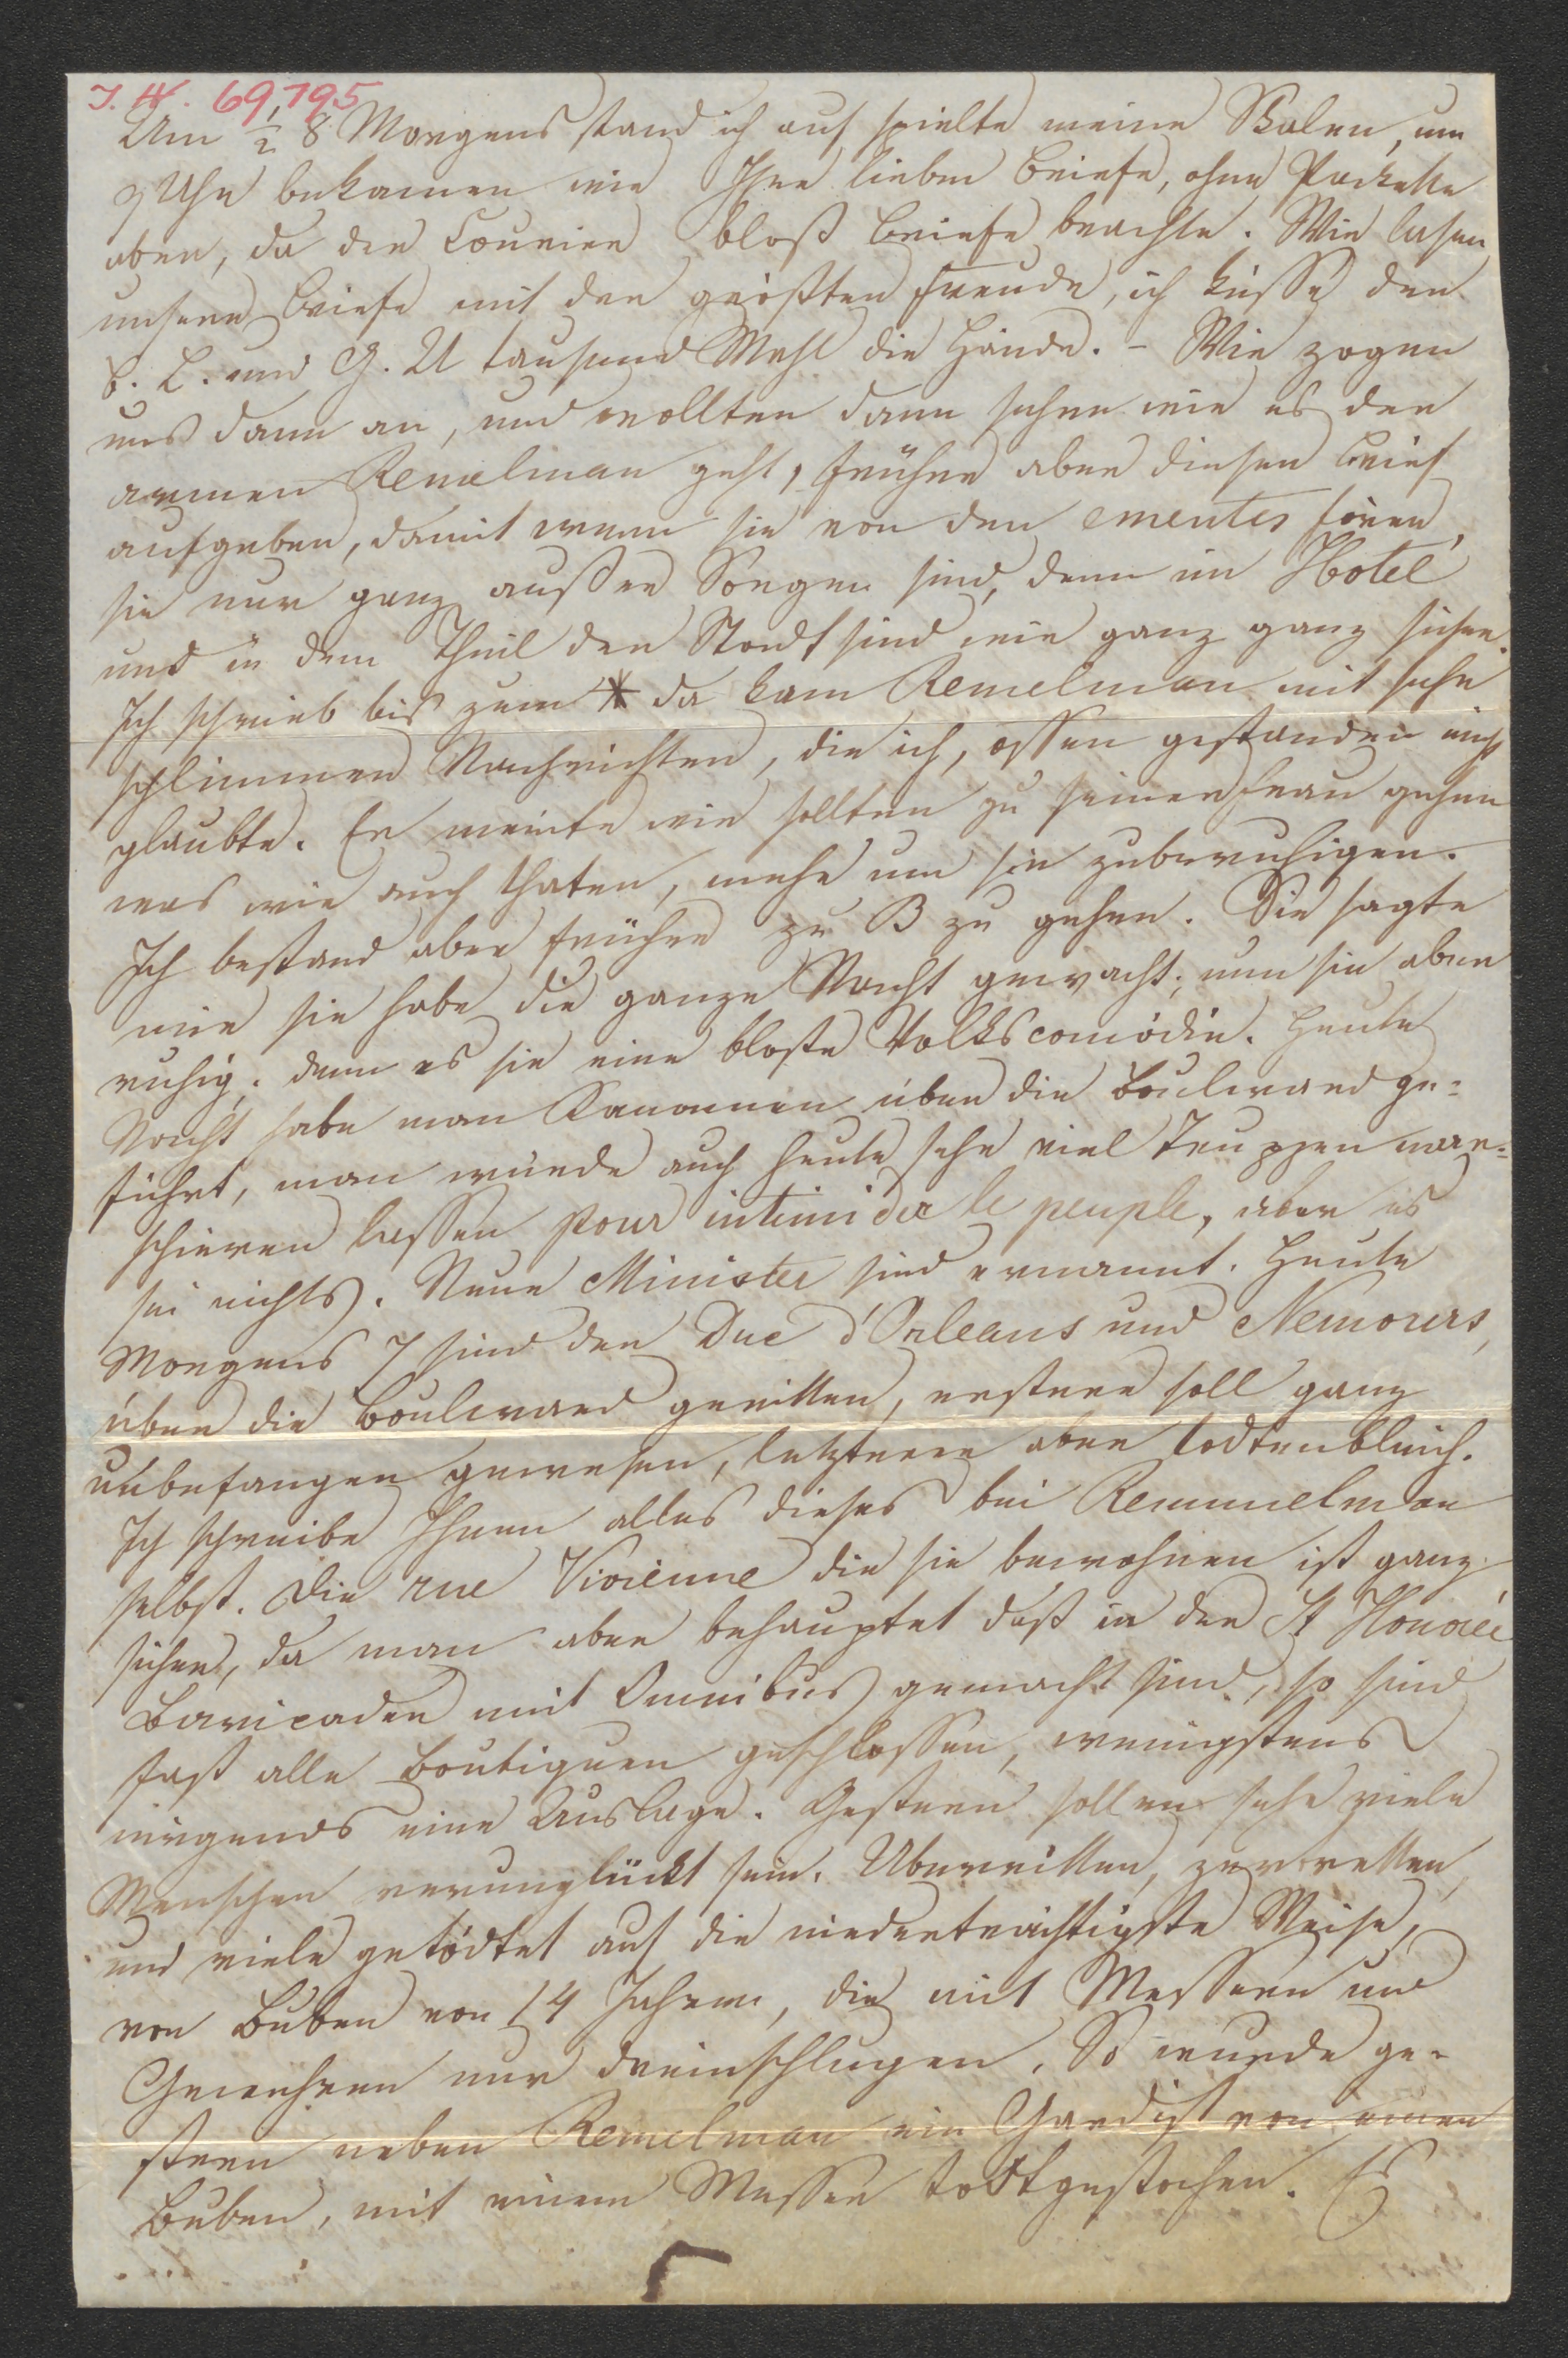 I. N. 69,795
Um ½ 8 Morgens stand ich auf spielte meine Skalen, um
9 Uhr bekamen wir Ihre lieben Briefe, ohne Packette
aber, da der Courier bloß Briefe brachte. Wir lasen
unsere Briefe mit der größten Freude, ich küsse der
b. L. und G. U tausend Mahl die Hände. – Wir zogen
uns dann an, und wollten dann sehen wie es der
armen Remelman geht, früher aber diesen Brief
aufgeben, damit wenn sie von den ementes hören,
sie nur ganz außer Sorgen sind, denn im Hotel
und in dem Theil der Stadt sind wir ganz ganz sicher.
Ich schrieb bis zum * da kam Remelman mit sehr
schlimmen Nachrichten, die ich, offen gestanden nicht
glaubte. Er meinte wir sollten zu seiner Frau gehen
was wir auch thaten, mehr um sie zuberuhigen.
Ich bestand aber früher zu B zu gehen. Sie sagte
mir sie habe die ganze Nacht gewacht; nun sie aber
ruhig, denn es sie eine bloße Volkscomödie. Heute
Nacht habe man Kanonnen über die Boulevard ge=
führt, man würde auch heute sehr viel Truppen mar=
schieren lassen pour intimider le peuple, aber es
sei nichts. Neue Minister sind ernannt. Heute
Morgens 7 sind der Duc d'Orleans und Nemours,
über die Boulevard geritten, ersterer soll ganz
unbefangen gewesen, letzterer aber todtenbleich.
Ich schreibe Ihnen alles dieses bei Remmelman
selbst. Die rue Vivienne die sie bewohnen ist ganz
sicher, da man aber behauptet daß in der St Honoré
Baricaden mit Omnibus gemacht sind, so sind
fast alle Boutiquen geschlossen, wenigstens
nirgends eine Auslage. Gestern sollen sehr viele
Menschen verunglückt sein. Uberritten, zertretten,
und viele getödtet auf die niederträchtigste Weise,
von Buben von 14 Jahren, die mit Messern und
Gewehren nur dreinschlugen. So wurde ge=
stern neben Remelman ein Gardist von einen
Buben, mit einem Messer todtgestochen. Es